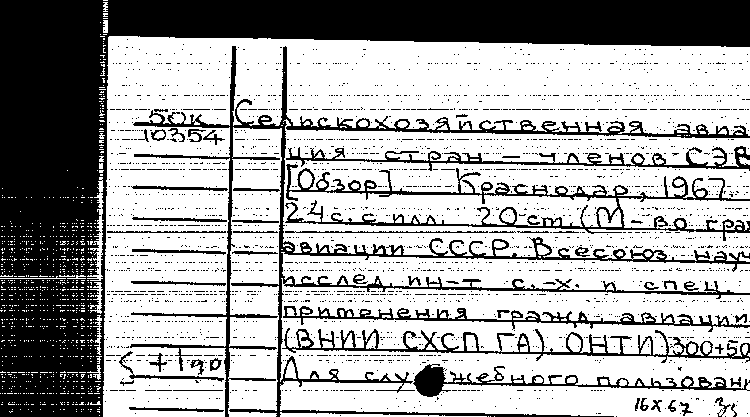 50к Сельскохозяйственная авиа
10354
ция стран – членов СЭВ
[Обзор]. Краснодар, 1967.
24 с. с илл. 20 см. (М-во граж
авиации СССР. Всесоюз. науч
исслед. ин-т с.-х. и спец.
применения гражд. авиации
(ВНИИ СХСП ГА). ОНТИ) 300+50
Для служебного пользован
16 X 67